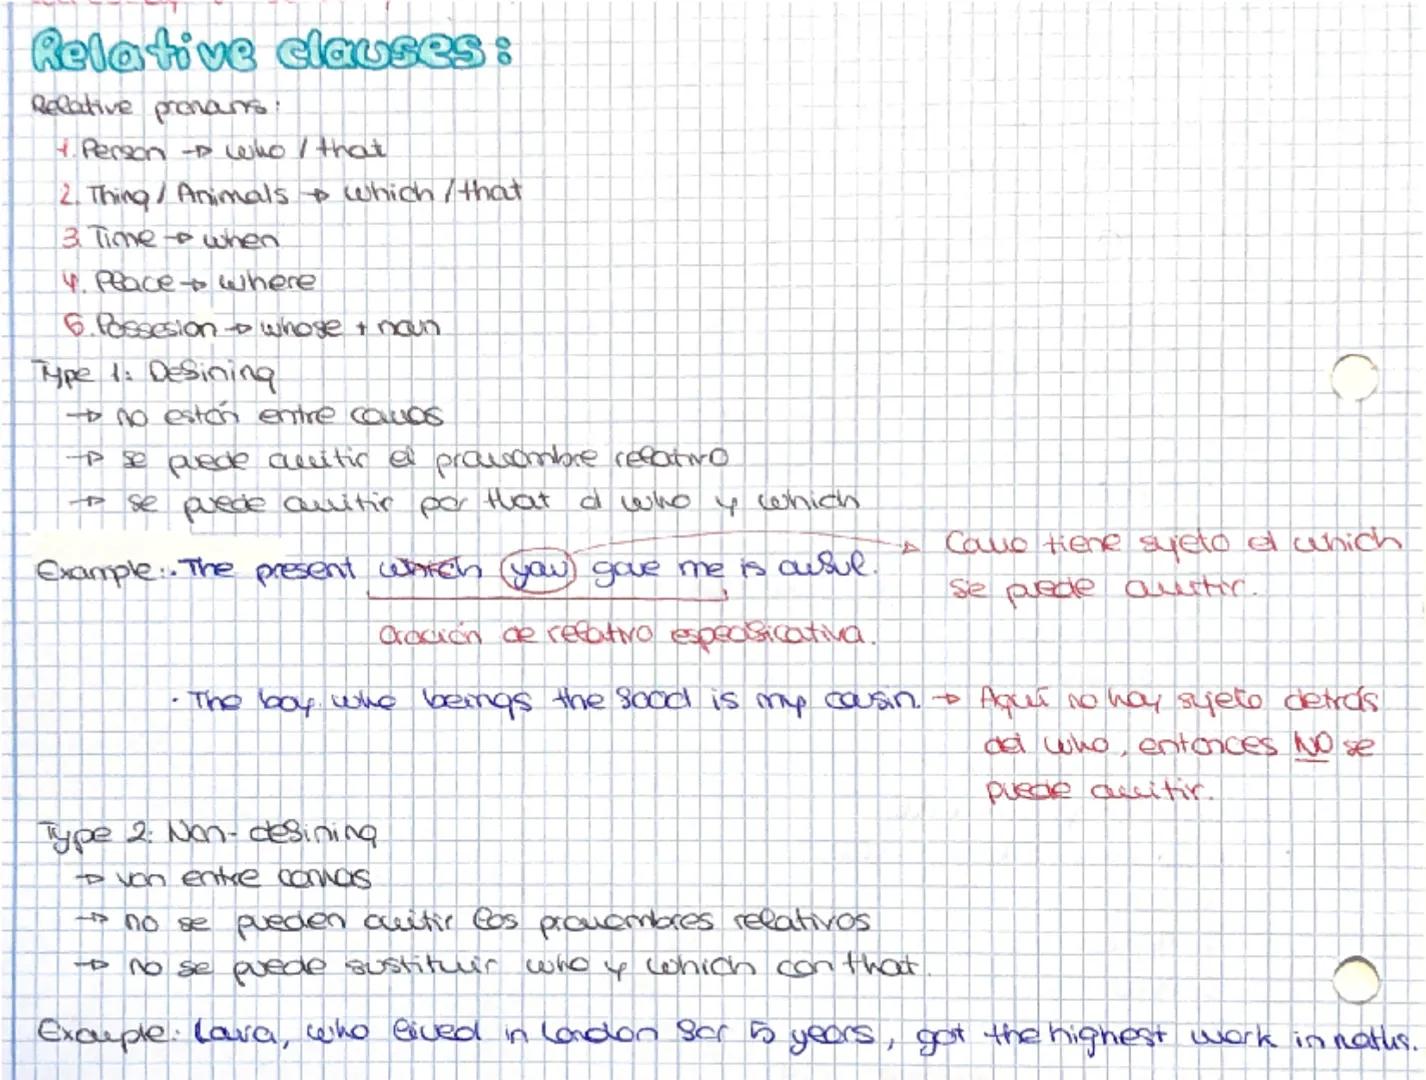 Relative clauses:
Relative pronouns:
1. Person → who / that
2. Thing / Animals → which / that
3. Time → when
4. Place → where
5. Possesion → whose + noun
Type 1: Defining
→ no están entre comas
→ se puede omitir el pronombre relativo
→ se puede omitir por that el who y which
Example: · The present which you gave me is awful. → Como tiene sujeto el which
se puede omitir.
oración de relativo especificativa.
· The boy who beings the food is my cousin. → Aquí no hay sujeto detrás
del who, entonces NO se
puede omitir.
Type 2: Non-defining
→ van entre comas
→ no se pueden omitir los pronombres relativos
→ no se puede sustituir who y which con that.
Example: Laura, who lived in London for 5 years, got the highest work in maths.